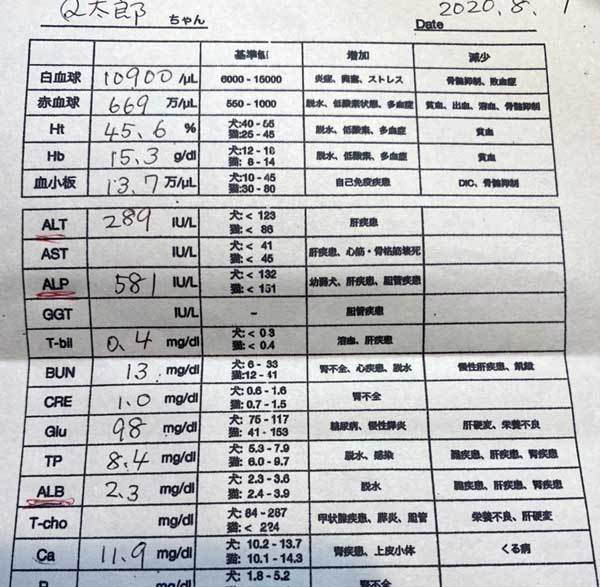 Q太郎 ちゃん 2020. 8. 1
Date
基準値 増加 減少
白血球 10900 /μL 6000 - 15000 炎症、興奮、ストレス 骨髄抑制、敗血症
赤血球 669 万/μL 550 - 1000 脱水、低酸素状態、多血症 貧血、出血、溶血、骨髄抑制
Ht 45.6 % 犬:40 - 55 脱水、低酸素、多血症 貧血
猫:25 - 45
Hb 15.3 g/dl 犬:12 - 18 脱水、低酸素、多血症 貧血
猫: 8 - 14
血小板 13.7 万/μL 犬:10 - 45 自己免疫疾患 DIC、骨髄抑制
猫:30 - 80
ALT 289 IU/L 犬:< 123 肝疾患
猫:< 86
AST IU/L 犬:< 41 肝疾患、心筋・骨格筋壊死
猫:< 45
ALP 581 IU/L 犬:< 132 幼弱犬、肝疾患、胆管疾患
猫:< 151
GGT IU/L - 胆管疾患
T-bil 0.4 mg/dl 犬:< 0.3 溶血、肝疾患
猫:< 0.4
BUN 13 mg/dl 犬: 6 - 33 腎不全、心疾患、脱水 慢性肝疾患、飢餓
猫:12 - 41
CRE 1.0 mg/dl 犬: 0.6 - 1.6 腎不全
猫: 0.7 - 1.5
Glu 98 mg/dl 犬: 75 - 117 糖尿病、慢性膵炎 肝硬変、栄養不良
猫: 41 - 153
TP 8.4 mg/dl 犬: 5.3 - 7.9 脱水、感染 腸疾患、肝疾患、腎疾患
猫: 6.0 - 9.7
ALB 2.3 mg/dl 犬: 2.3 - 3.6 脱水 腸疾患、肝疾患、腎疾患
猫: 2.4 - 3.9
T-cho mg/dl 犬: 84 - 287 甲状腺疾患、膵炎、胆管 栄養不良、肝硬変
猫: < 224
Ca 11.9 mg/dl 犬: 10.2 - 13.7 腎疾患、上皮小体 くる病
猫: 10.1 - 14.3
mg/dl 犬: 1.8 - 5.2 腎不全